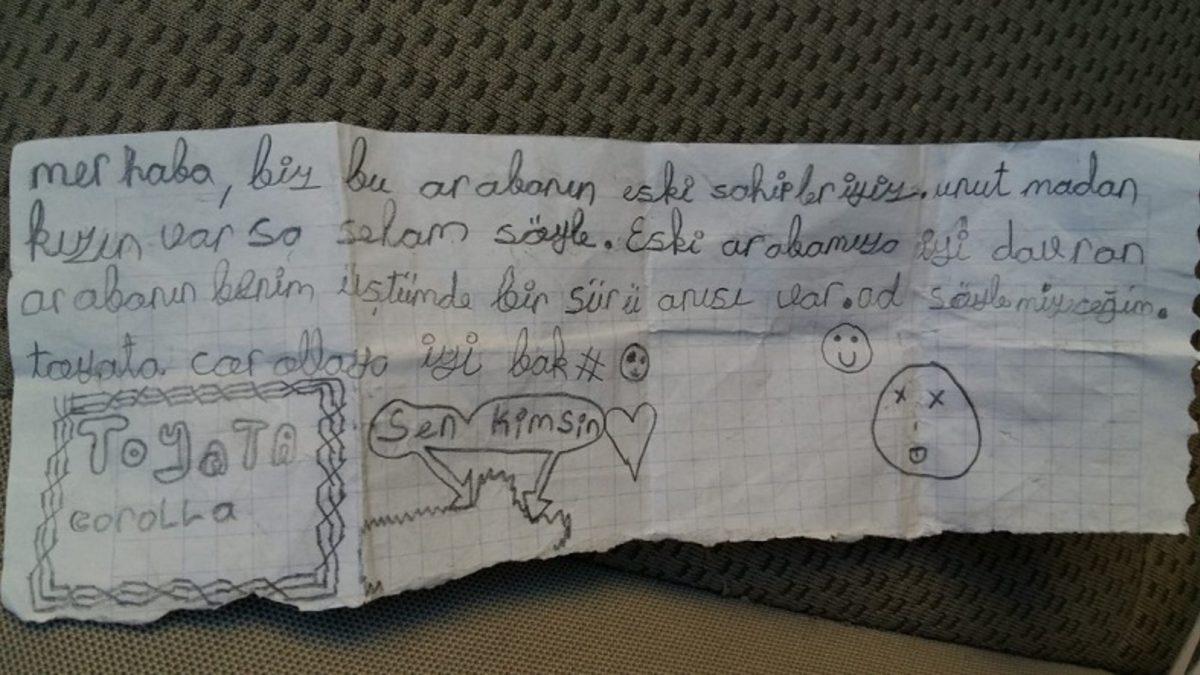 merhaba, biz bu arabanın eski sahipleriyiz. unutmadan
kızın varsa selam söyle. Eski arabamıza iyi davran
arabanın benim üstümde bir sürü anısı var. ad söylemiyeceğim.
toyata carollaya iyi bak #
Sen kimsin
TOYATA
COROLLA